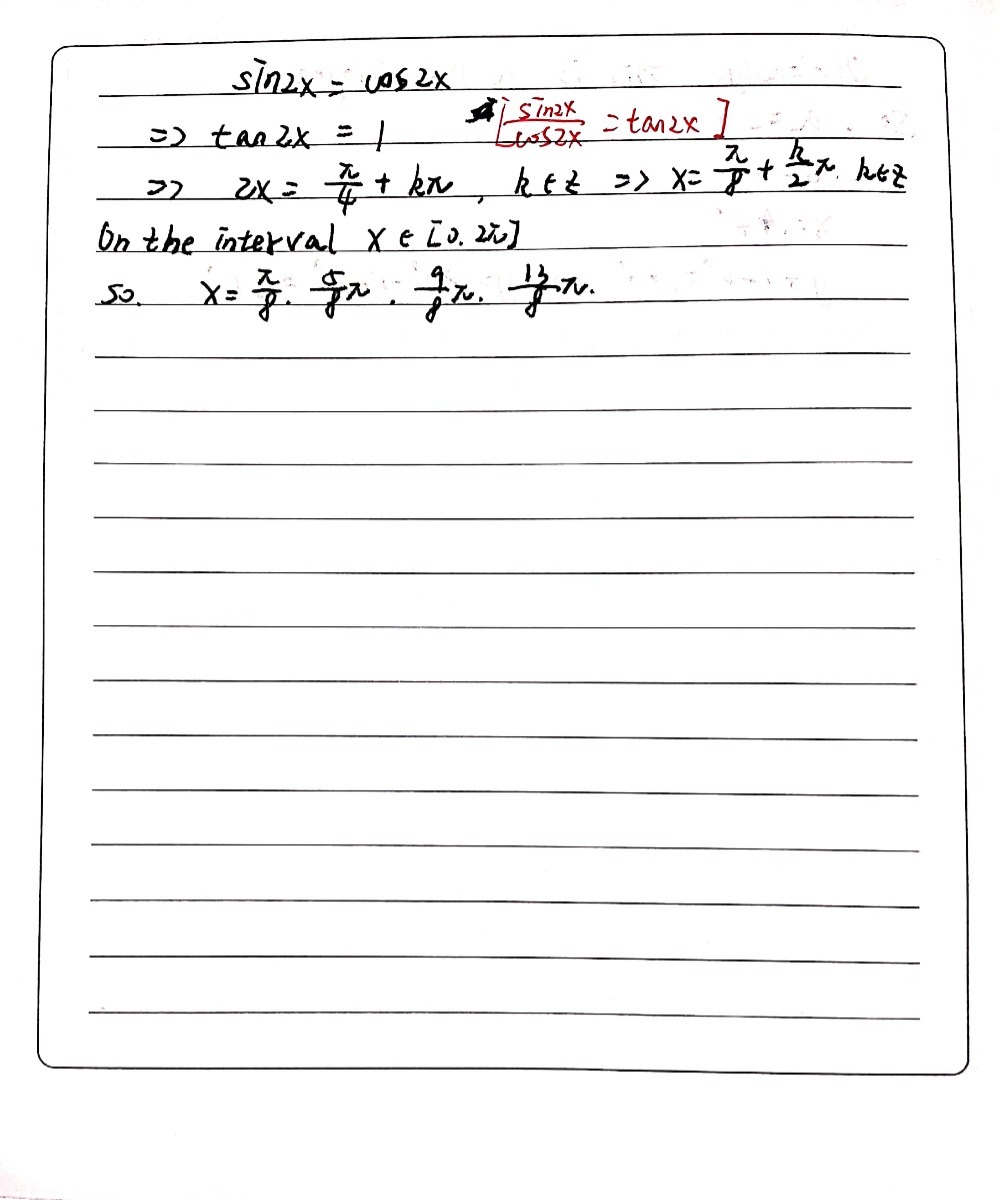 sin2x = cos2x
=> tan2x = 1 [sin2x/cos2x = tan2x]
=> 2x = π/4 + kπ, k∈Z => x = π/8 + k/2 π. k∈Z
On the interval x ∈ [0. 2π]
So. x = π/8. 5/8 π. 9/8 π. 13/8 π.